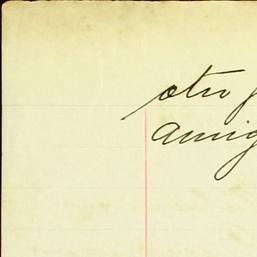 otro
amig